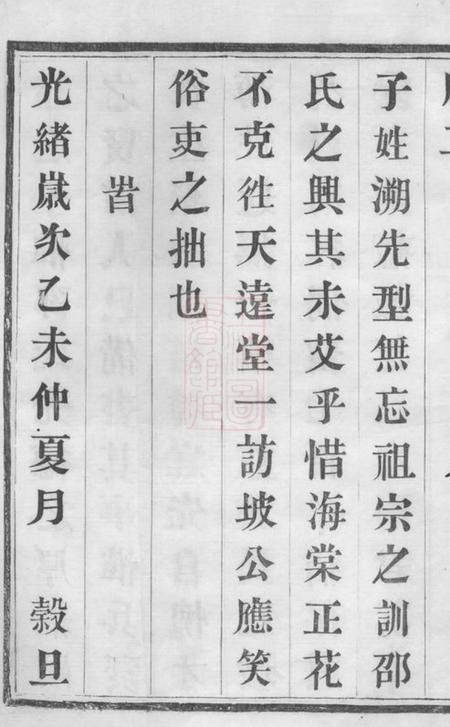 子姓溯先型無忘祖宗之訓邵
氏之興其未艾乎惜海棠正花
不克徃天遠堂一訪坡公應笑
俗吏之拙也
旹
光緒歲次乙未仲夏月　榖旦